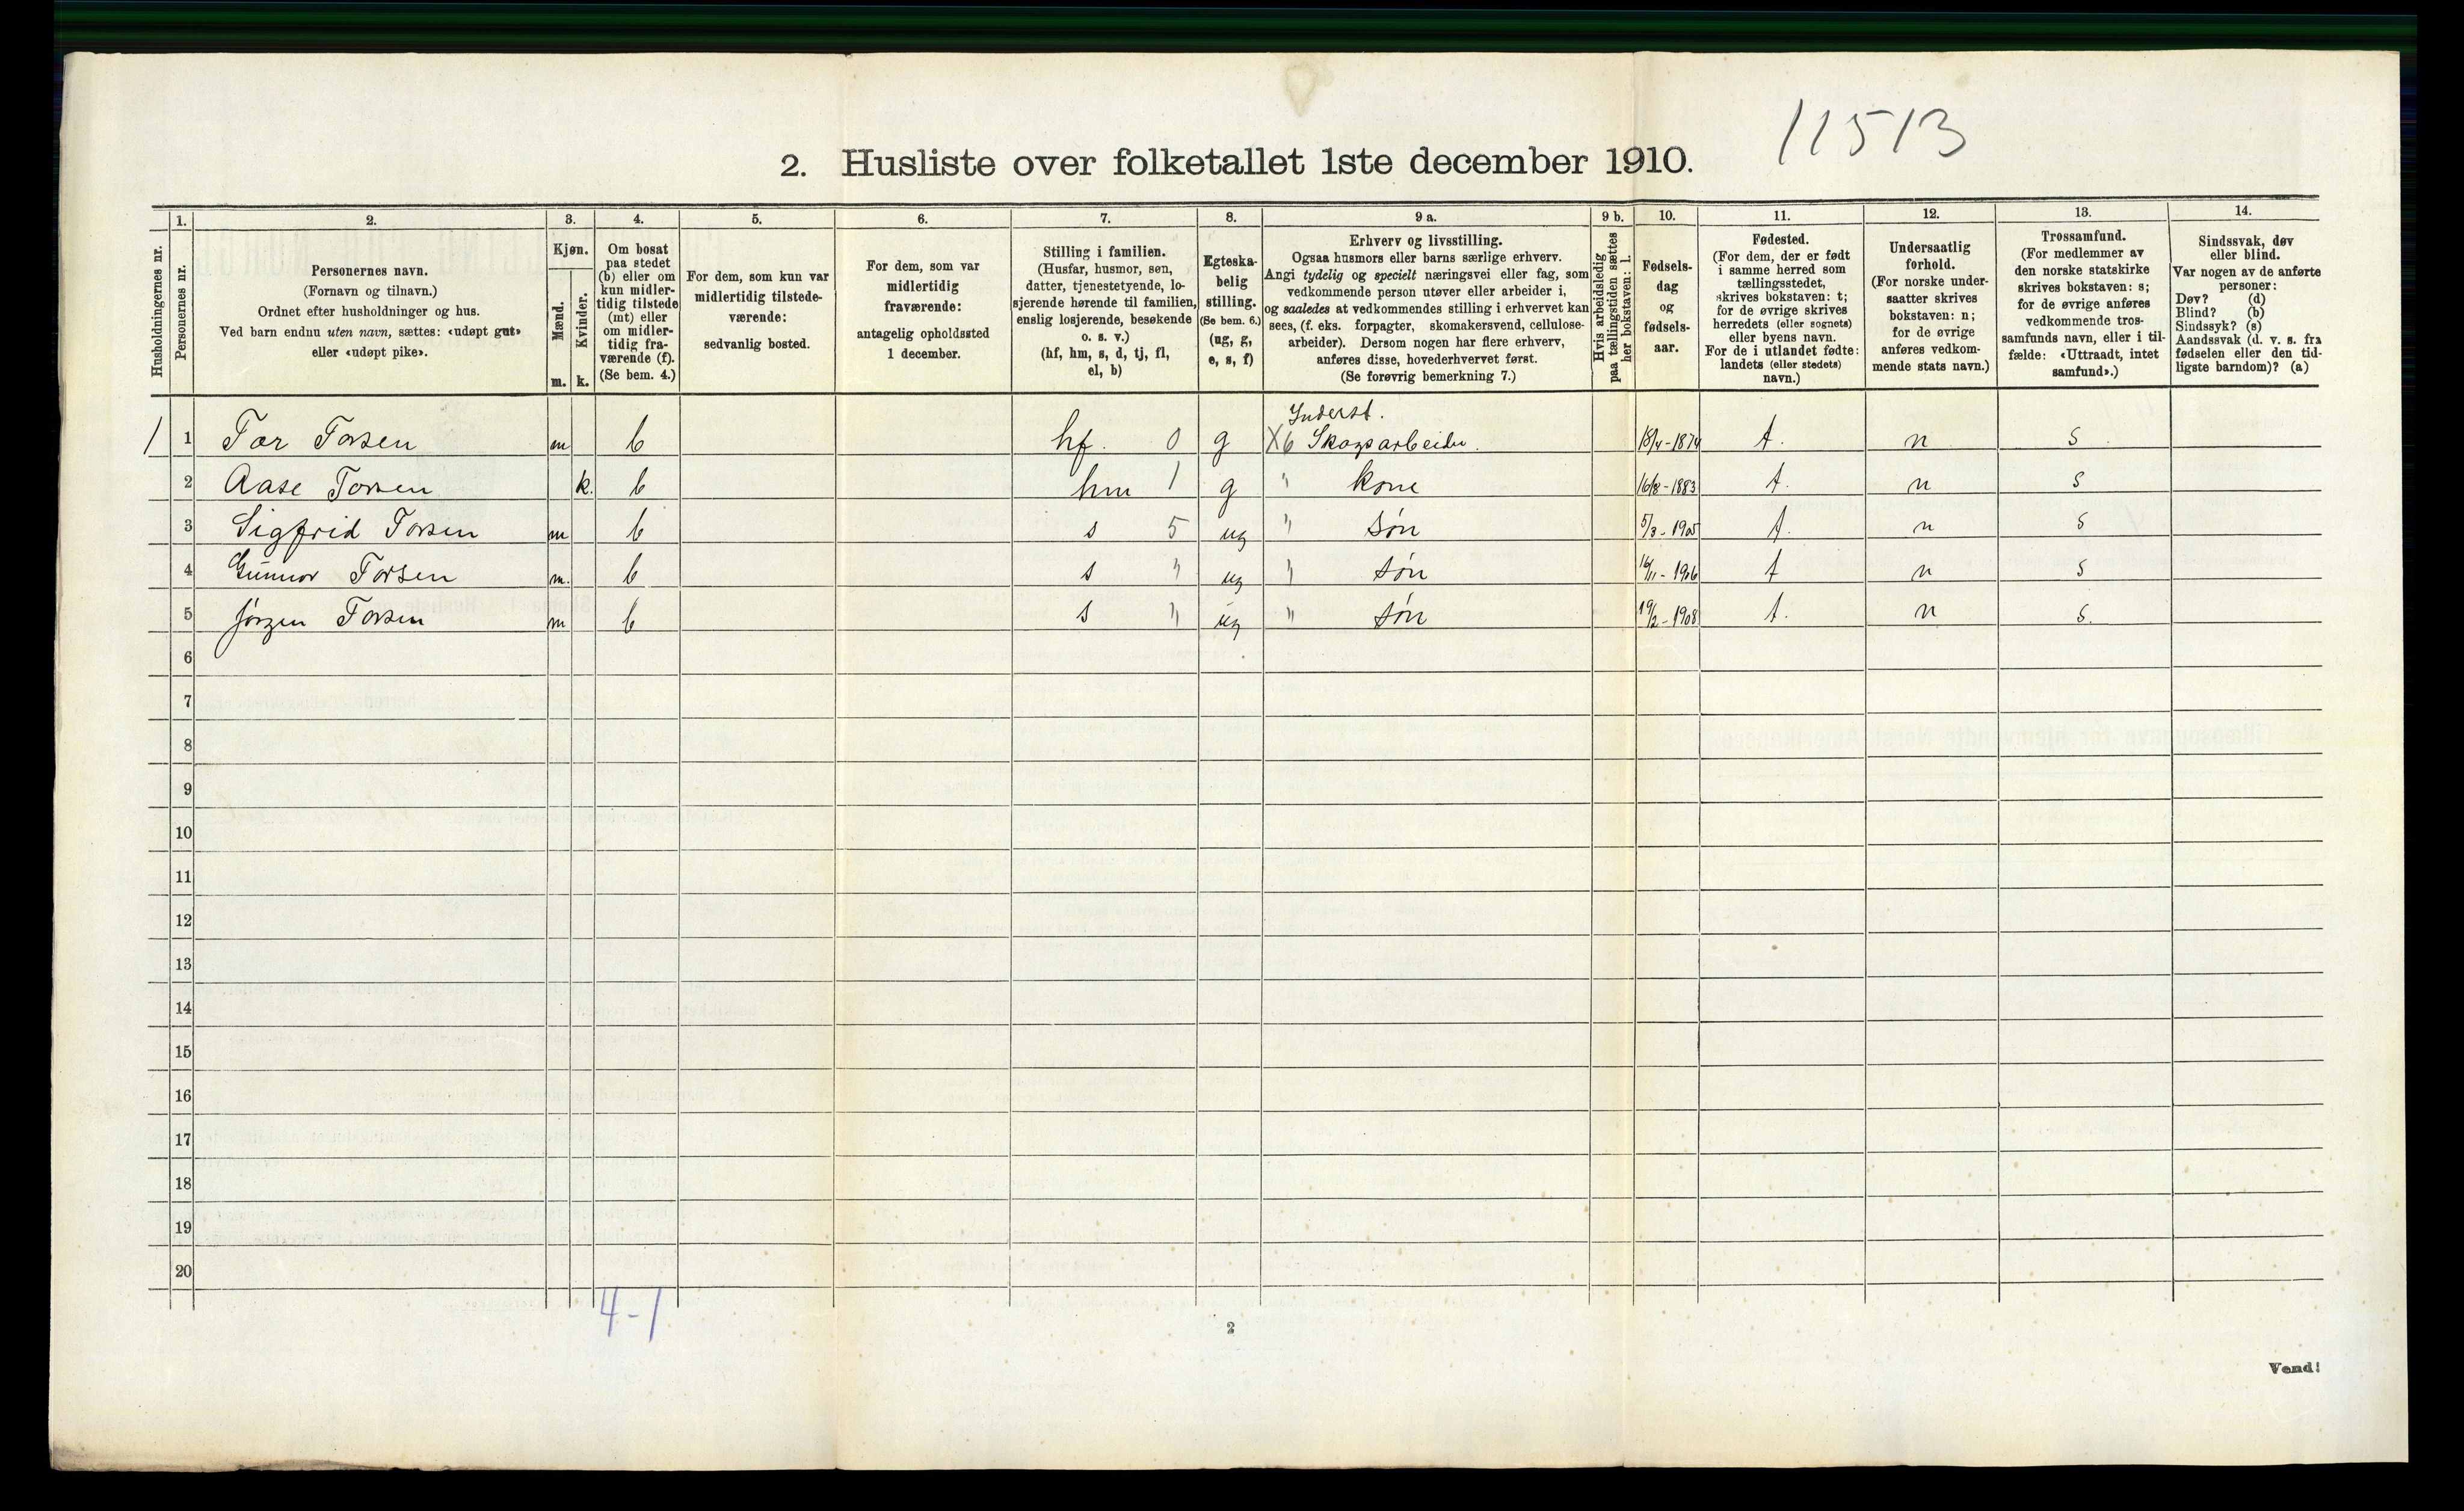 11513
2. Husliste over folketallet 1ste december 1910.
Husholdningernes nr.
1.
Personernes nr.
2.
Personernes navn.
(Fornavn og tilnavn.)
Ordnet efter husholdninger og hus.
Ved barn endnu uten navn, sættes: «udøpt gut»
eller «udøpt pike».
3.
Kjøn.
Mænd.
Kvinder.
m. k.
4.
Om bosat
paa stedet
(b) eller om
kun midler-
tidig tilstede
(mt) eller
om midler-
tidig fra-
værende (f).
(Se bem. 4.)
5.
For dem, som kun var
midlertidig tilstede-
værende:
sedvanlig bosted.
6.
For dem, som var
midlertidig
fraværende:
antagelig opholdssted
1 december.
7.
Stilling i familien.
(Husfar, husmor, søn,
datter, tjenestetyende, lo-
sjerende hørende til familien,
enslig losjerende, besøkende
o. s. v.)
(hf, hm, s, d, tj, fl,
el, b)
8.
Egteska-
belig
stilling.
(Se bem. 6.)
(ug, g,
e, s, f)
9 a.
Erhverv og livsstilling.
Ogsaa husmors eller barns særlige erhverv.
Angi tydelig og specielt næringsvei eller fag, som
vedkommende person utøver eller arbeider i,
og saaledes at vedkommendes stilling i erhvervet kan
sees, (f. eks. forpagter, skomakersvend, cellulose-
arbeider). Dersom nogen har flere erhverv,
anføres disse, hovederhvervet først.
(Se forøvrig bemerkning 7.)
9 b.
Hvis arbeidsledig
paa tællingstiden sættes
her bokstaven: l.
10.
Fødsels-
dag
og
fødsels-
aar.
11.
Fødested.
(For dem, der er født
i samme herred som
tællingsstedet,
skrives bokstaven: t;
for de øvrige skrives
herredets (eller sognets)
eller byens navn.
For de i utlandet fødte:
landets (eller stedets)
navn.)
12.
Undersaatlig
forhold.
(For norske under-
saatter skrives
bokstaven: n;
for de øvrige
anføres vedkom-
mende stats navn.)
13.
Trossamfund.
(For medlemmer av
den norske statskirke
skrives bokstaven: s;
for de øvrige anføres
vedkommende tros-
samfunds navn, eller i til-
fælde: «Uttraadt, intet
samfund».)
14.
Sindssvak, døv
eller blind.
Var nogen av de anførte
personer:
Døv? (d)
Blind? (b)
Sindssyk? (s)
Aandssvak (d. v. s. fra
fødselen eller den tid-
ligste barndom)? (a)
Inderst.
1 1 Tor Torsen m b hf. 0 g X6 Skogsarbeider. 18/4-1874 t. n s
2 Aase Torsen k. b hm 1 g " kone 16/8-1883 t. n s
3 Sigfrid Torsen m b s 5 ug " søn 5/3-1905 t. n s
4 Gunnor Torsen m. b s " ug " søn 16/11-1906 t n s
5 Jörgen Torsen m b s " ug " søn 19/2-1908 t. n s.
6
7
8
9
10
11
12
13
14
15
16
17
18
19
20
4-1
2
Vend!